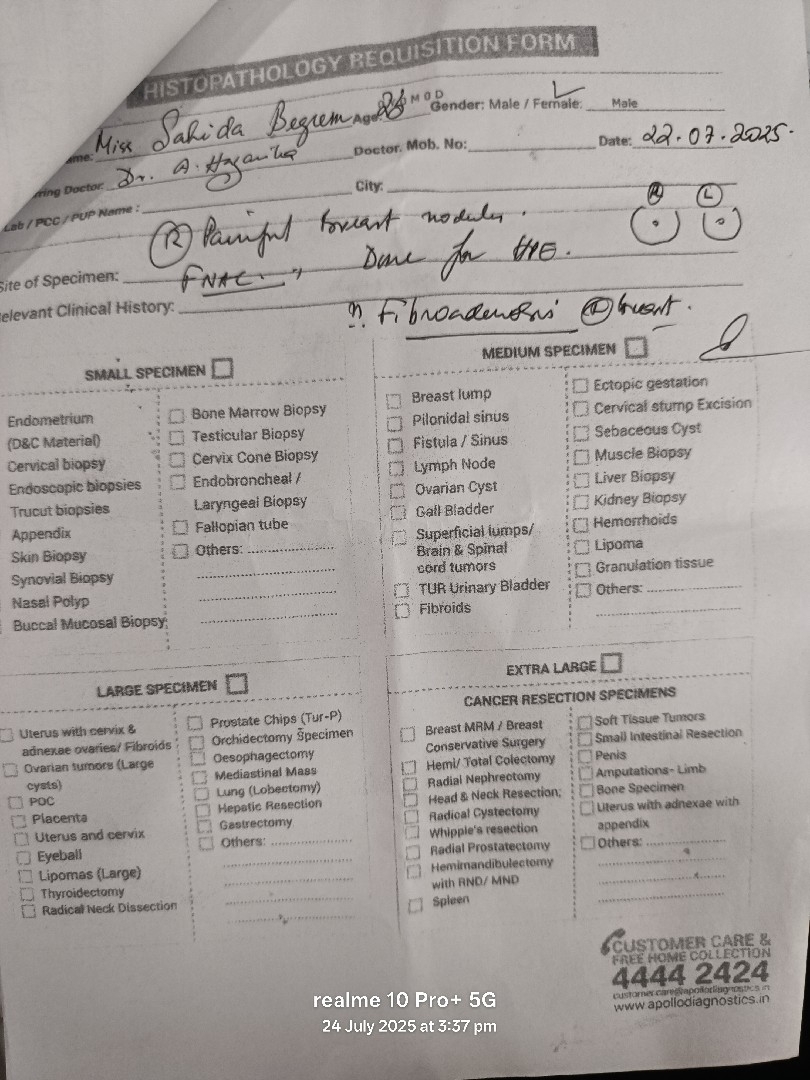 HISTOPATHOLOGY REQUISITION FORM
Miss Sahida Begum Age: 28 M O D Gender: Male / Female: Male
Doctor. Mob. No: Date: 22.07.2025.
ring Doctor: Dr. A. Hazarika
City:
Lab / PCC / PUP Name:
(R) Painful breast nodules. (R) (L)
Site of Specimen: FNAC. Done for HPE.
elevant Clinical History:
?? Fibroadenosis (R) breast.
SMALL SPECIMEN
Endometrium
(D&C Material)
Cervical biopsy
Endoscopic biopsies
Trucut biopsies
Appendix
Skin Biopsy
Synovial Biopsy
Nasal Polyp
Buccal Mucosal Biopsy
Bone Marrow Biopsy
Testicular Biopsy
Cervix Cone Biopsy
Endobroncheal /
Laryngeal Biopsy
Fallopian tube
Others:
MEDIUM SPECIMEN
Breast lump
Pilonidal sinus
Fistula / Sinus
Lymph Node
Ovarian Cyst
Gall Bladder
Superficial lumps/
Brain & Spinal
cord tumors
TUR Urinary Bladder
Fibroids
Ectopic gestation
Cervical stump Excision
Sebaceous Cyst
Muscle Biopsy
Liver Biopsy
Kidney Biopsy
Hemorrhoids
Lipoma
Granulation tissue
Others:
LARGE SPECIMEN
Uterus with cervix &
adnexae ovaries/ Fibroids
Ovarian tumors (Large
cysts)
POC
Placenta
Uterus and cervix
Eyeball
Lipomas (Large)
Thyroidectomy
Radical Neck Dissection
Prostate Chips (Tur-P)
Orchidectomy Specimen
Oesophagectomy
Mediastinal Mass
Lung (Lobectomy)
Hepatic Resection
Gastrectomy
Others:
EXTRA LARGE
CANCER RESECTION SPECIMENS
Breast MRM / Breast
Conservative Surgery
Hemi/ Total Colectomy
Radial Nephrectomy
Head & Neck Resection;
Radical Cystectomy
Whipple's resection
Radial Prostatectomy
Hemimandibulectomy
with RND/ MND
Spleen
Soft Tissue Tumors
Small Intestinal Resection
Penis
Amputations- Limb
Bone Specimen
Uterus with adnexae with
appendix
Others:
CUSTOMER CARE &
FREE HOME COLLECTION
4444 2424
customer.care@apollodiagnostics.in
www.apollodiagnostics.in
realme 10 Pro+ 5G
24 July 2025 at 3:37 pm